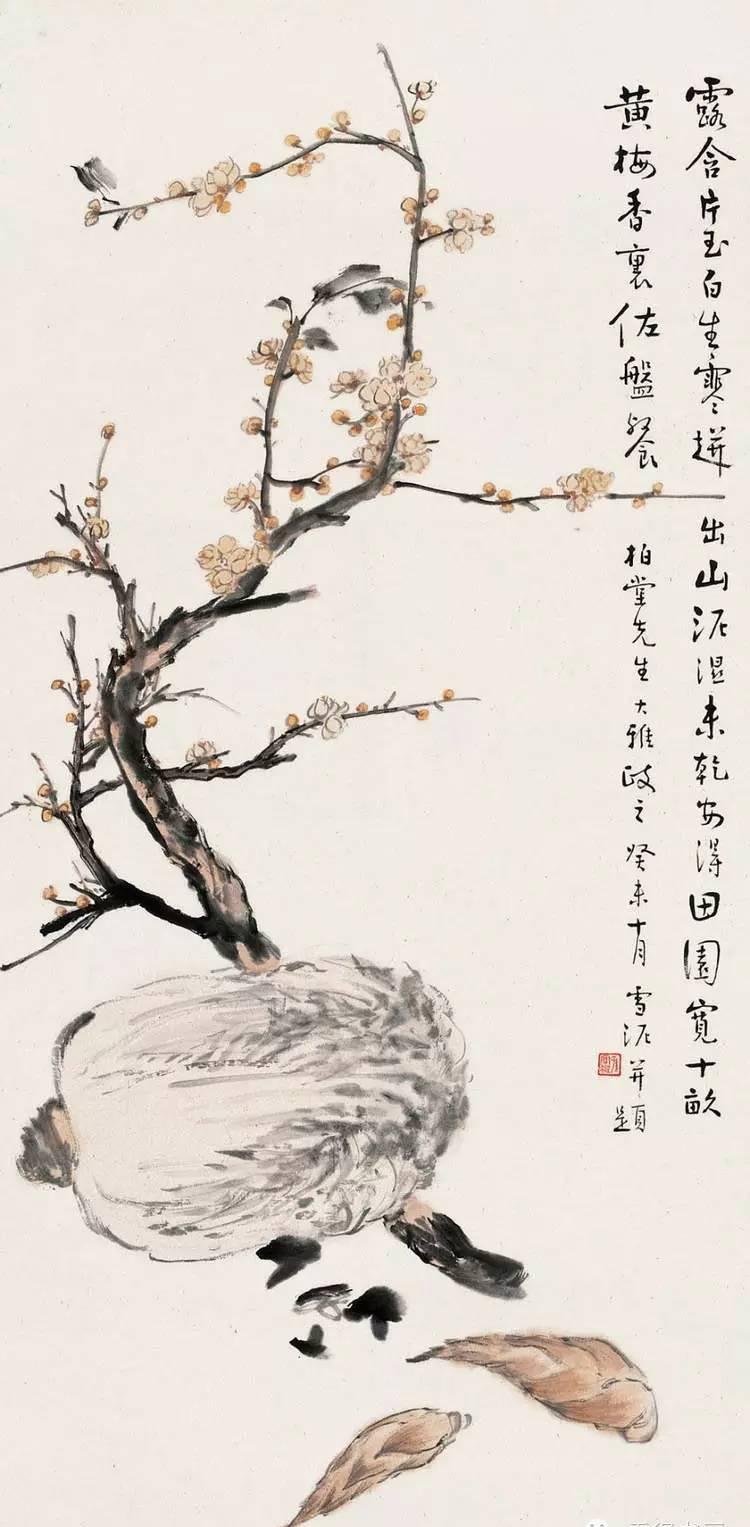 露含片玉白生寒拼出山泥湿未乾安得田園寬十畝
黄梅香裏佐盤餐
柏堂先生大雅政之癸未十月雪泥并題